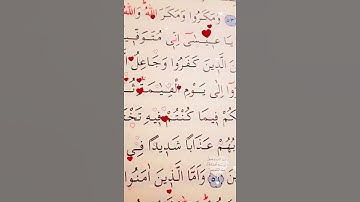 ﴿٥٣﴾ وَمَكَرُوا وَمَكَرَ اللّٰهُ وَاللّٰهُ
يَا عٖيسٰٓى اِنّٖى مُتَوَفّٖيكَ
الَّذٖينَ كَفَرُوا وَجَاعِلُ
اِلٰى يَوْمِ الْقِيٰمَةِ ثُمَّ
فٖيمَا كُنْتُمْ فٖيهِ
عَذَابًا شَدٖيدًا فِى
﴿٥٦﴾ وَاَمَّا الَّذٖينَ اٰمَنُوا